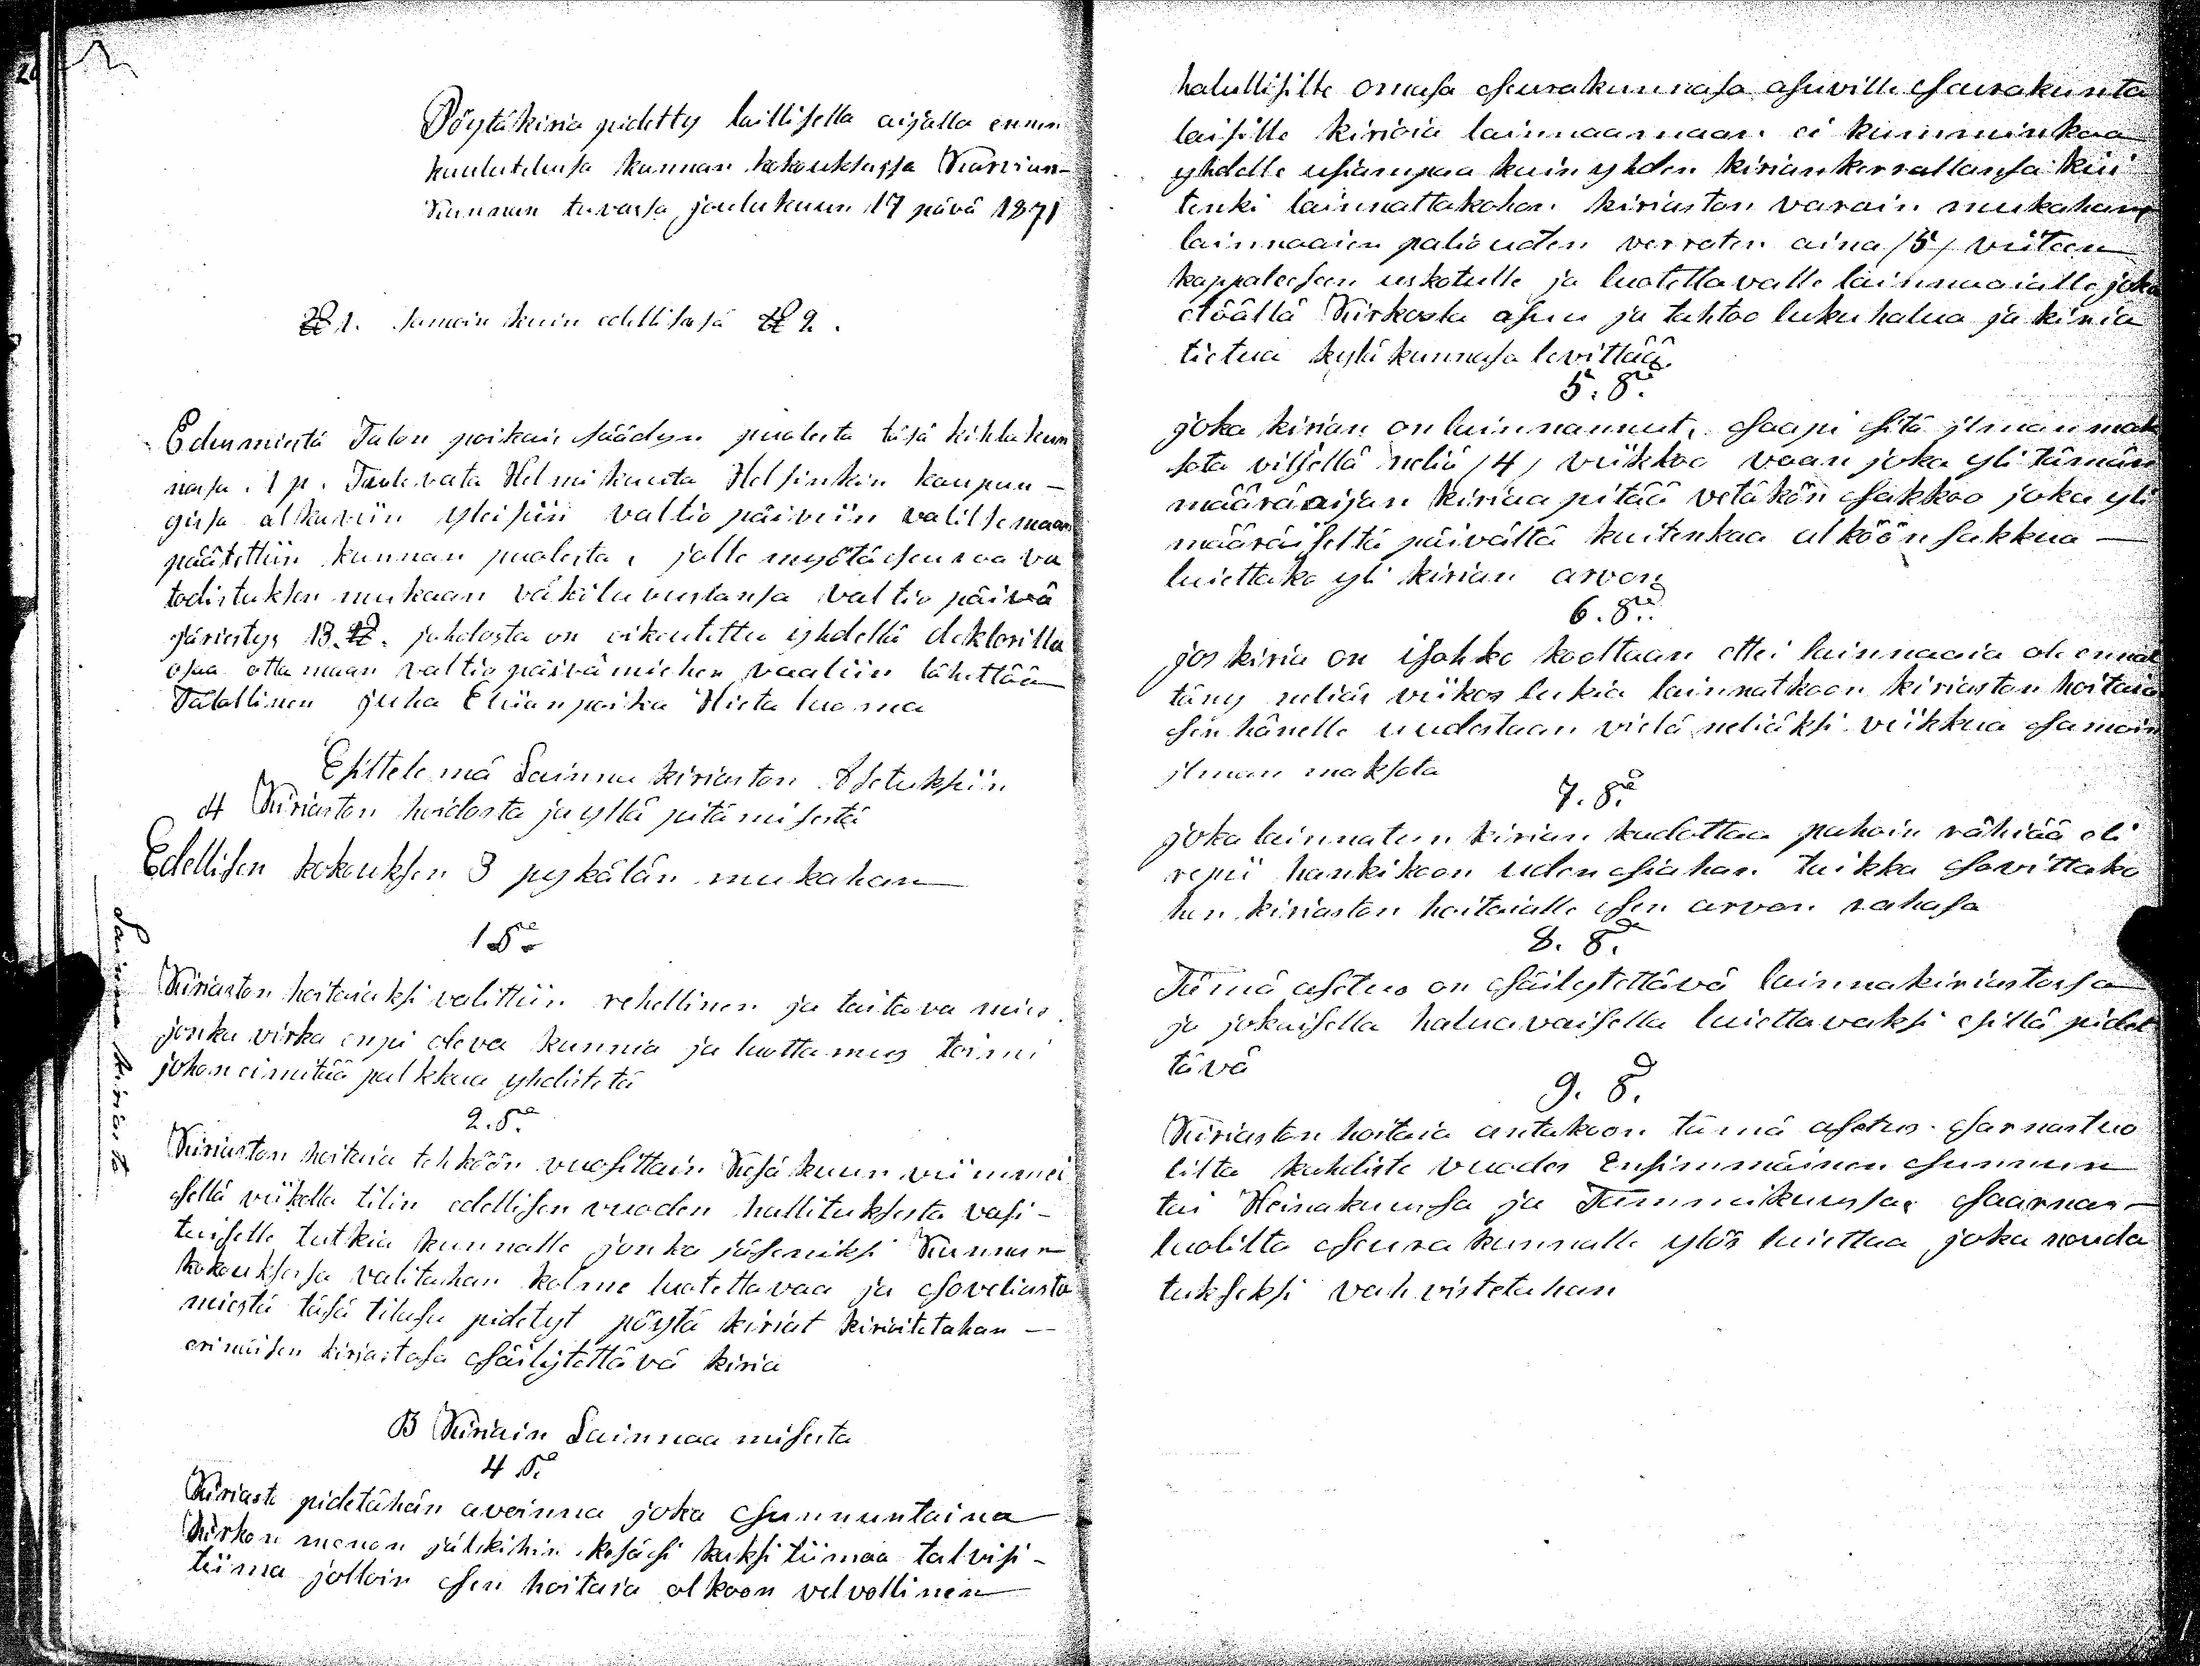 Pöytäkiria pidetty laillisella aijalla ennen
kuulutelusa kunnan kokouksessa Karvian-
Kunnan tuvassa joulukuun 17 pävä 1871
§ 1. samoin kuin edellisesä § 2.
Edusmiestä Talon poikais säädyn puolesta täsä kihlakun
nasa. 1 p. Tuulevata Helmikuuta Helsinkin kaupun-
gissa alkaviin yleisiin valtio päiviin valitsemaan
päätettiin kunnan puolesta, jolle myötäseuraava
todistuksen mukaan väkiluvustansa valtio päivä
järiestys 13. §. johdosta on oikeutettu yhdellä elektorilla
osaa ottamaan valtiopäivämiehen vaaliin lähettää
Talallinen Juha Eliianpoika Hietaluoma
Esittelemä Lainna kiriaston Asetuksiin
A Kiriaston hoidosta ja yllä pitämisestä
Edellisen kokouksen 3 pykälän mukahan
1 §.
Kiriaston hoitaiaksi valittiin rehellinen ja taitava mies
jonka virka enpi oleva kunnia ja luottamus toimi
johon ei mitää palkkaa yhdistetä
2. §.
Kiriaston hoitaia tehköön vuosittain Kesäkuun viimmei
sellä viikolla tilin edellisen vuoden hallituksesta vasi-
tuiselle tutkia kunnalle jonka jäseniksi Kunnan
kokouksessa valitahan kolme luotettavaa ja soveliasta
miestä täsä tilasa pidetyt pöytä kiriat kirioitetahan
erimäisen kiriastosa säilytettävä kiria
Lainna kiriasto
B Kiriain Lainnaamisesta
4 §.
Kiriasto pidetähän avoinna joka sunnuntaina
Kirkon menon jälikihin kesäsi kaksi tiimaa talvisi-
tiima jolloin sen hoitaia olkoon velvollinen
halullisille omasa seurakunnasa asuville seurakunta
laisille kirioia lainnaamaan ei kumminkaa
yhdelle usiampaa kuin yhden kirian kerrallansa kui
tenki lainnattakohon kiriaston varain mukahan
lainnaaien paliouden verraten aina /5/ viiteen
kappaleeseen uskotulle ja luotettavalle lainnaaialle joka
etöällä Kirkosta asuu ja tahtoo lukuhalua ja kiria
tietua kyläkunnasa levittää.
5. §.
joka kirian on lainnannut, saapi sitä ilman mak
sota viljellä neliä /4/ viikkoo vaan joka yli tämän
määräaijan kiriaa pitää vetäkön sakkoo joka yli
määräiseltä päivältä kuitenkaa alköön sakkua
luiettako yli kirian arvon
6. §.
jos kiria on isohko kooltaan ettei lainnaaia ole ennät
täny neliäs viikos lukia lainnatkoon kiriaston hoitaia
sen hänelle uudestaan vielä neliäksi viikkua samoin
ilman maksota
7. §.
joka lainnatun kirian kadottaa pahoin rähiää eli
repii hankikoon uden siahan taikka sovittako
hon kiriaston hoitaialle sen arvon rahasa
8. §.
Tämä asetus on säilytettävä lainnakiriastossa
ja jokaisella haluavaisella luiettavaksi esillä pidet
tävä
9. §.
Kiriaston hoitaia antakoon tämä asetus sarnastuo
lilta kahdiste vuodes Ensimmäinen sunnun
tai Heinakuussa ja Tammikuussa, saarnas-
tuolilta seurakunnalle ylös luiettaa joka nouda
tukseksi vahvistetahan